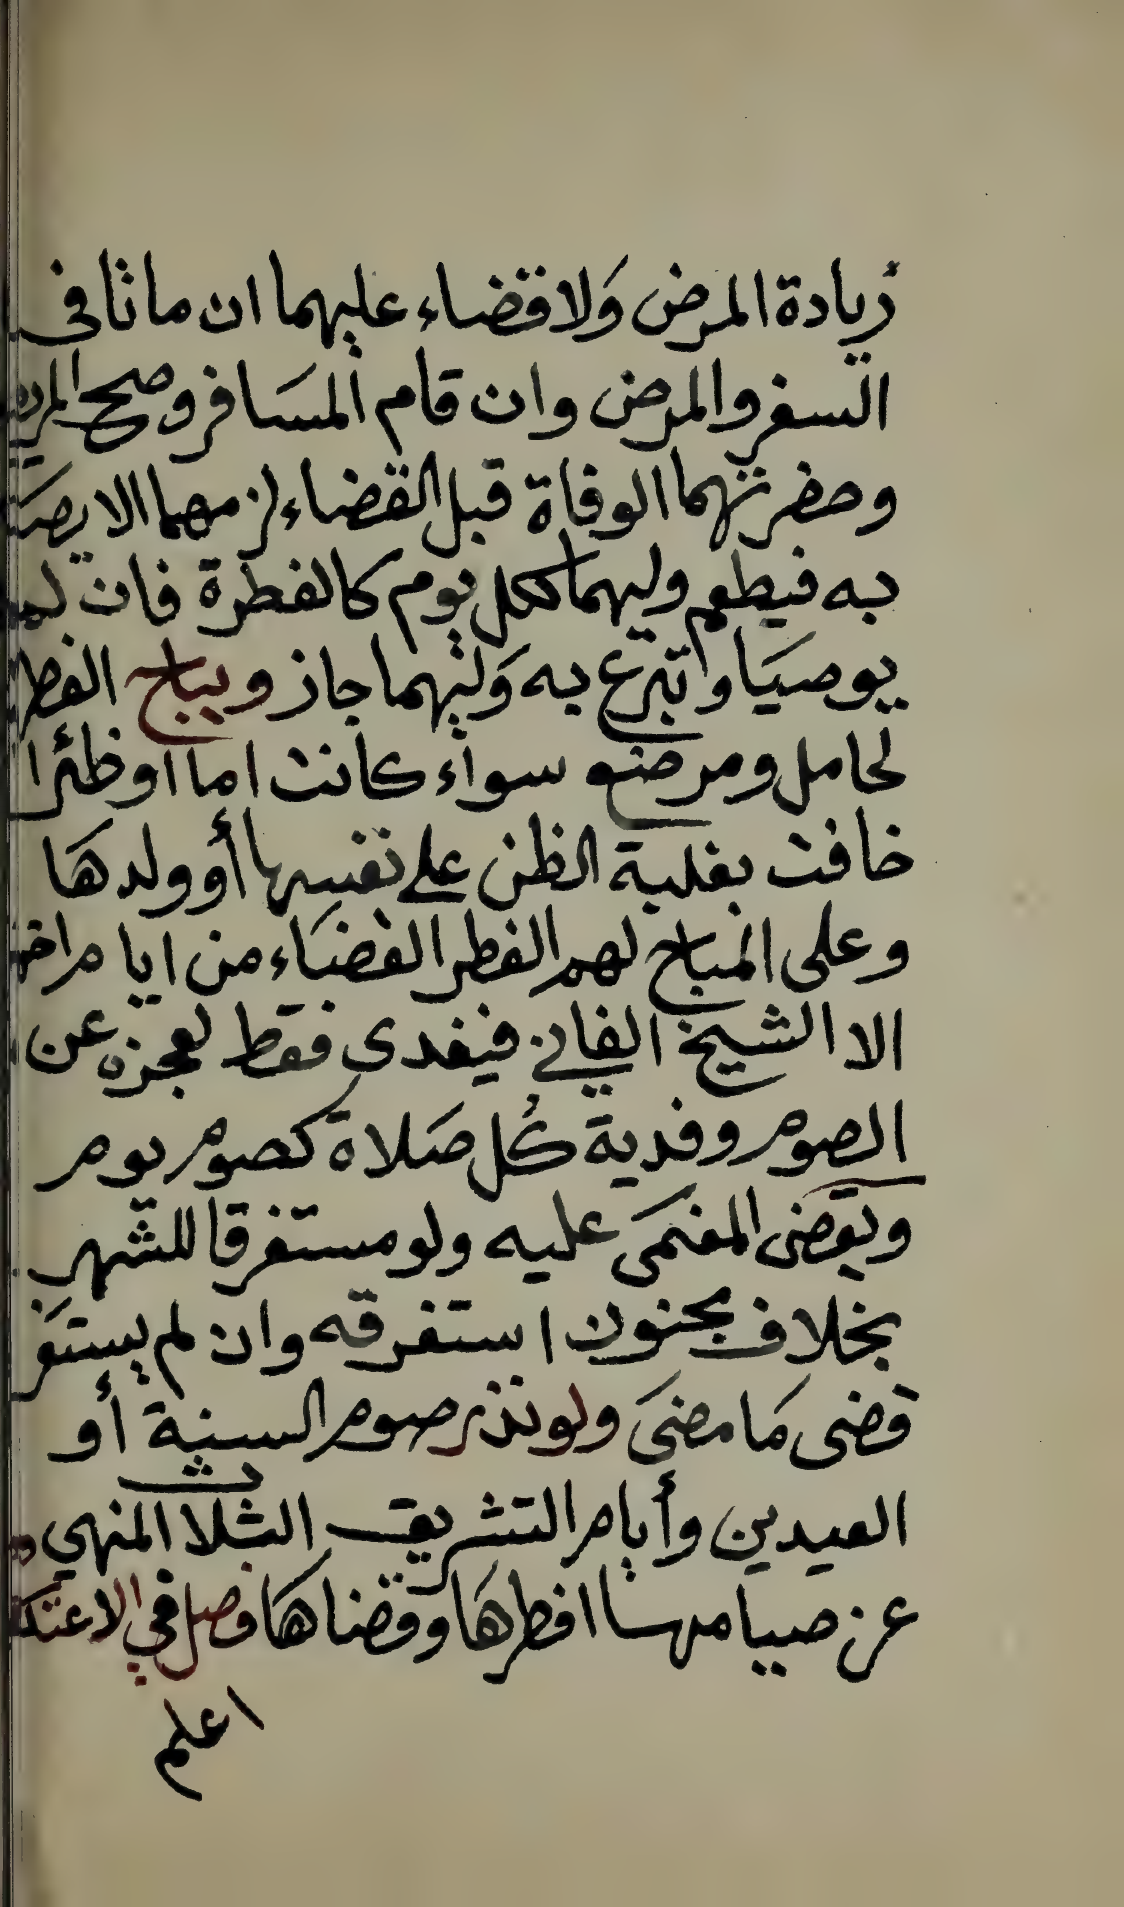 زيادة المرض وَلا قضاء عليهما ان ماتا فى
السفر والمرض وان قام المسَافر وصح المريض
وحضرتهما الوفاة قبل القضاء لزمهما الايصَا
به فيطعم وليهما لكل يوم كالفطرة فان لم
يوصيَا وتبرع به وَليهما جاز ويباح الفطر
لحامل ومرضع سواء كانت اما او ظئرا
خافت بغلبة الظن على نفسها أو ولدهَا
وعلى المباح لهم الفطر القضَاء من ايام اخر
الا الشيخ الفاني فيفدى فقط لعجزه عن
الصوم وفدية كُل صَلاة كصوم يوم
ويقضى المغمَى عليه ولو مستغرقا للشهر
بخلاف بجنون استغرقه وان لم يستغر
قضى مَا مضىَ ولو نذر صوم السنة أو
العيدين وأيام التشريق الثلاث المنهي
عن صيامها افطرهَا وقضاهَا فصل في الاعتكا
اعلم